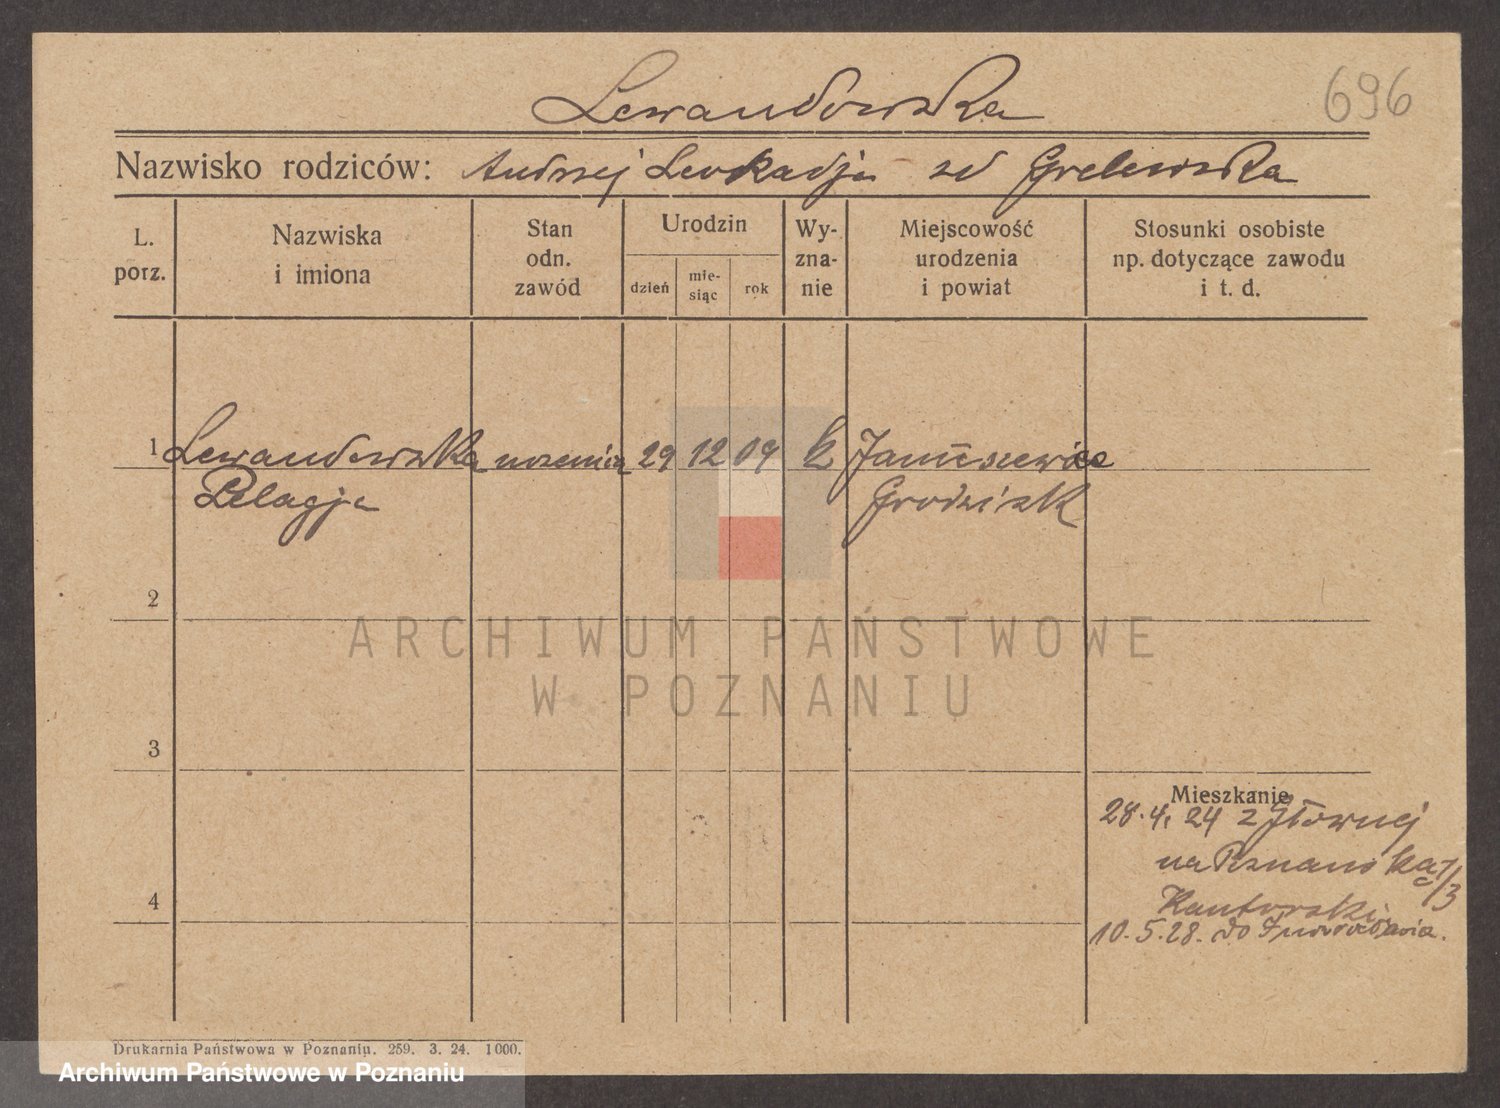 Lewandowska
696
Nazwisko rodziców: Andrzej Leokadja zd Grelewska
L. porz.
Nazwiska i imiona
Stan odn. zawód
Urodzin
dzień
mie-siąc
rok
Wy-zna-nie
Miejscowość urodzenia i powiat
Stosunki osobiste np. dotyczące zawodu i t. d.
1 Lewandowska uczenica 29 12 09 k Januszewice
Pelagja Grodzisk
2
ARCHIWUM PAŃSTWOWE
W POZNANIU
3
Mieszkanie
28.4.24 z Głównej
na Poznańska 7/3
4
Kantorski
10.5.28. do Inowrocławia.
Drukarnia Państwowa w Poznaniu. 259. 3. 24. 1000.
Archiwum Państwowe w Poznaniu